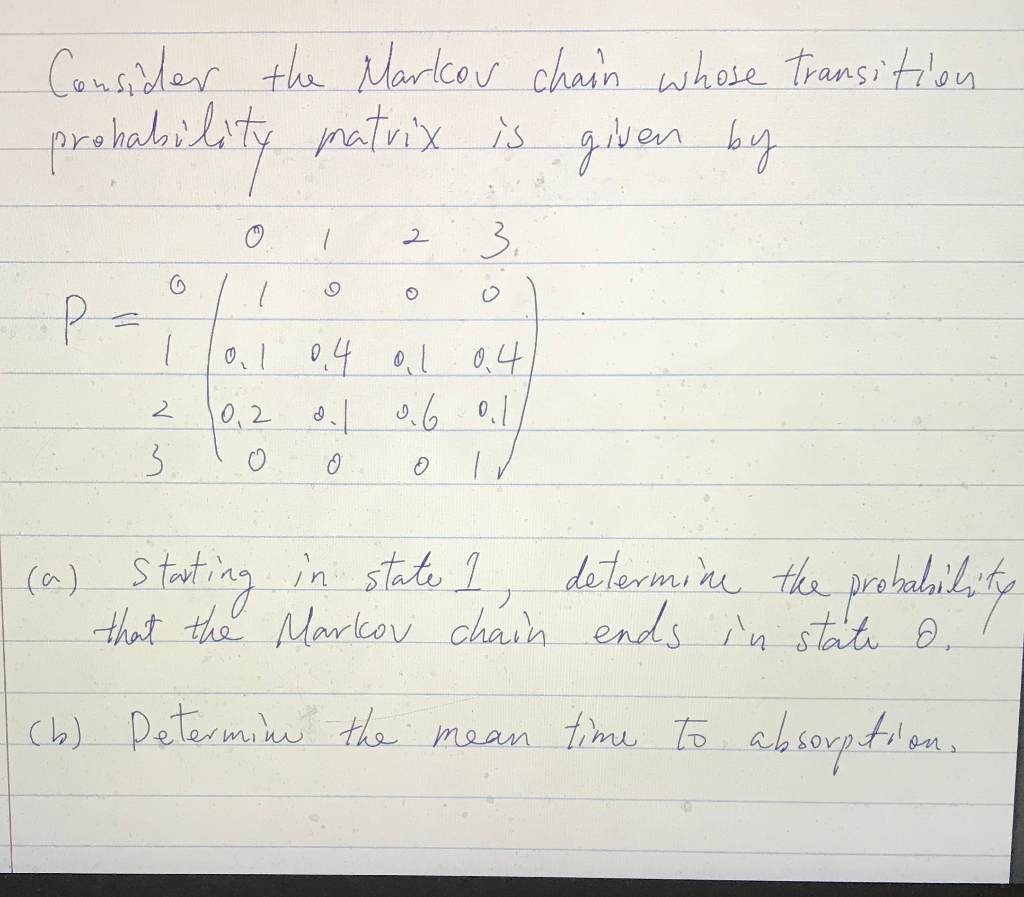 Consider the Markov chain whose transition
probability matrix is given by
0 1 2 3
0 1 0 0 0
P =
1 0.1 0.4 0.1 0.4
2 0.2 0.1 0.6 0.1
3 0 0 0 1
(a) Starting in state 1, determine the probability
that the Markov chain ends in state 0.
(b) Determine the mean time to absorption.